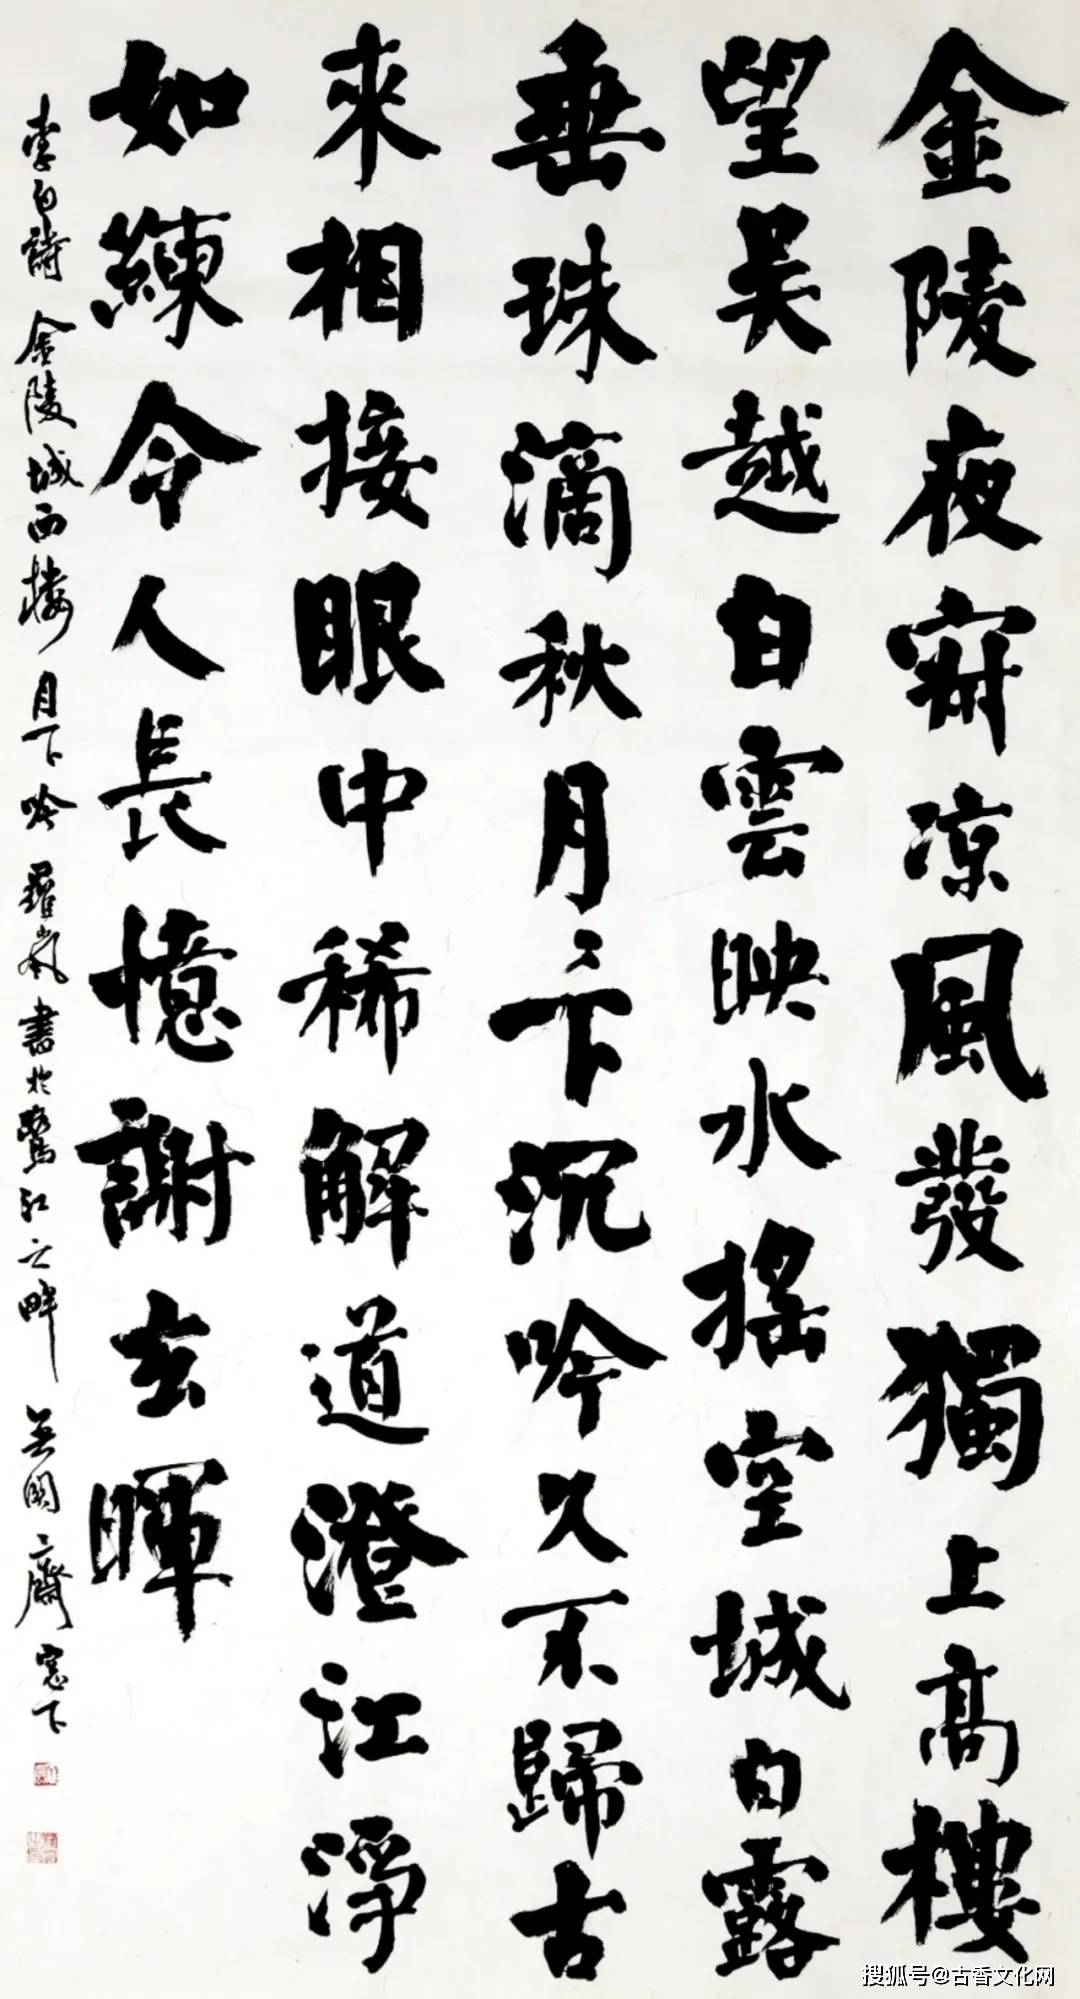 金陵夜寂凉風發獨上高樓
望吳越白雲映水搖空城白露
垂珠滴秋月〻下沉吟久不歸古
來相接眼中稀解道澄江淨
如練令人長憶謝玄暉
李白詩金陵城西樓月下吟羅嵐書於鷺江之畔無関齋窓下
搜狐号@古香文化网